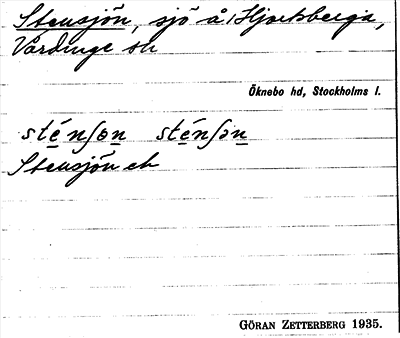 Stensjön, sjö å Hjortsberga,
Vårdinge sn
Öknebo hd, Stockholms l.
sténʃɵn sténʃɘn
Stensjön ek
GÖRAN ZETTERBERG 1935.